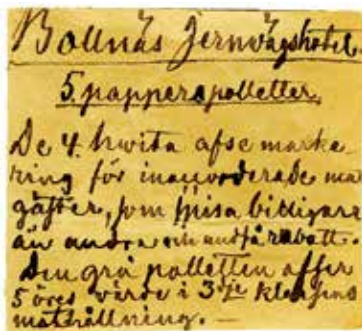 Bollnäs Jernvägshotel
5. papperspolletter.
De 4. hwita afse marke-
ring för inackorderade ma
gäster, som spisa billigare
än andra och undfå rabatt.
Den grå polletten afser
5 öres värde i 3dje klassens
mathållning. —